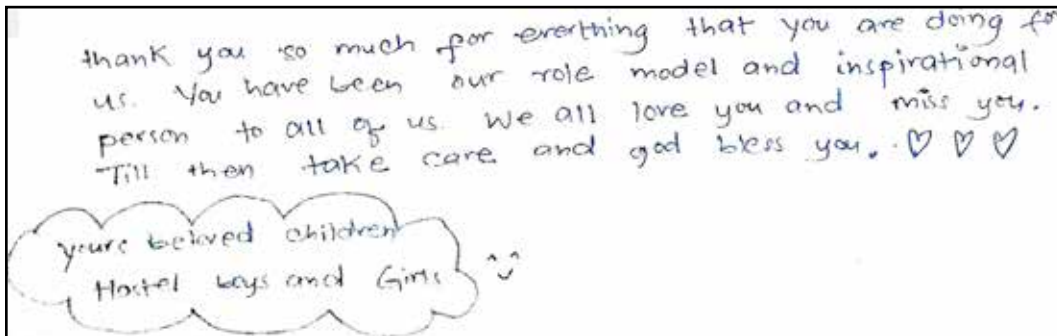 thank you so much for everthing that you are doing for
us. You have been our role model and inspirational
person to all of us. We all love you and miss you.
Till then take care and god bless you. ♡ ♡ ♡
youre beloved children
Hostel boys and Girls